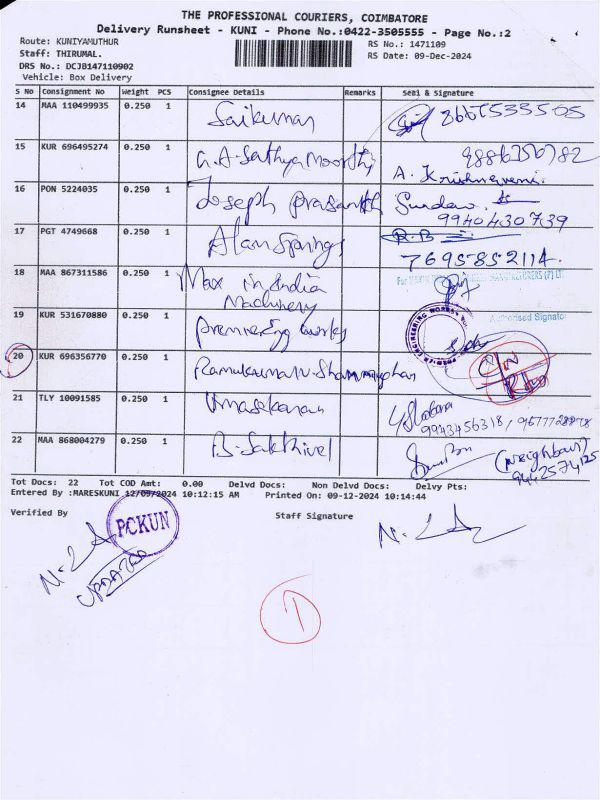 THE PROFESSIONAL COURIERS, COIMBATORE
Delivery Runsheet - KUNI - Phone No.:0422-3505555 - Page No.:2
Route: KUNIYAMUTHUR RS No.: 1471109
Staff: THIRUMAL. RS Date: 09-Dec-2024
DRS No.: DCJB147110902
Vehicle: Box Delivery
S No Consignment No Weight PCS Consignee Details Remarks Seal & Signature
14 MAA 110499935 0.250 1 Saikumar
15 KUR 696495274 0.250 1 G.A. Sathya Moorthy 9886356782
A. Krishnaveni.
16 PON 5224035 0.250 1 Joseph Prasanth Sundar
9940430739
17 PGT 4749668 0.250 1 Alan Springs R.B
7695852114.
18 MAA 867311586 0.250 1 Max in India
Machinery
19 KUR 531670880 0.250 1 Premier Eng Works Authorised Signato
20 KUR 696356770 0.250 1 Ramukumar
21 TLY 10091585 0.250 1 Umasekaran
9943456318,
22 MAA 868004279 0.250 1 B. Sakthivel (Neighbour)
9442574125
Tot Docs: 22 Tot COD Amt: 0.00 Delvd Docs: Non Delvd Docs: Delvy Pts:
Entered By :MARESKUNI 12/09/2024 10:12:15 AM Printed On: 09-12-2024 10:14:44
Verified By Staff Signature
PCKUN
UPDATED
1